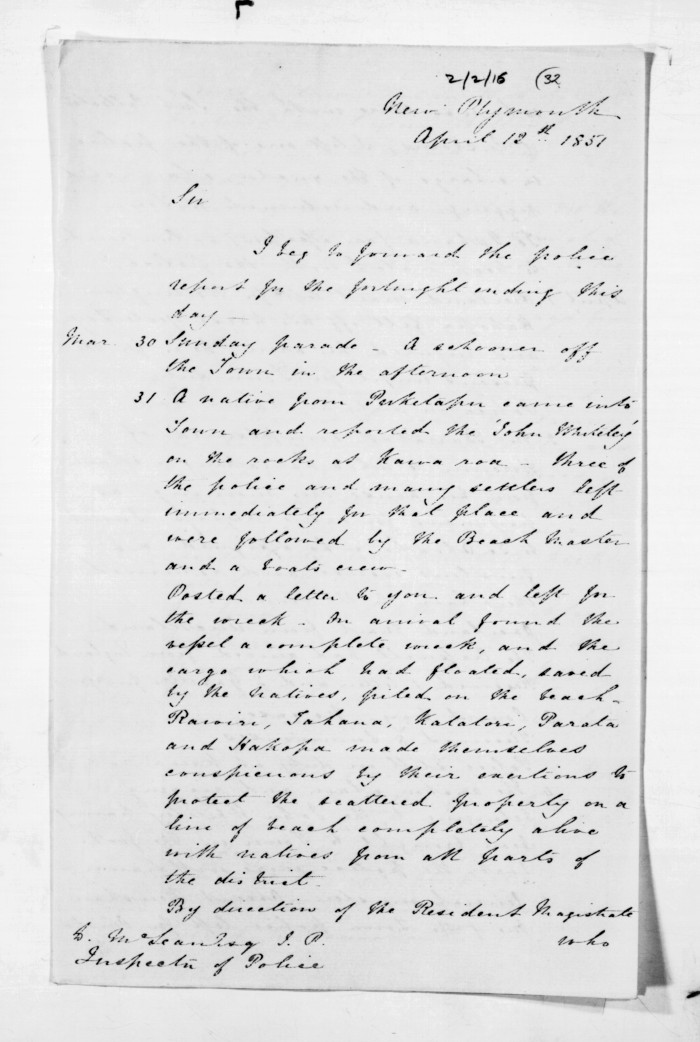 5
2/2/16 (32
New Plymouth
April 12th 1851
Sir
I beg to forward the police
report for the fortnight ending this
day —
Mar. 30 Sunday parade – A schooner off
the Town in the afternoon
31 A native from Puketapu came into
Town and reported the 'John Whiteley'
on the rocks at Kawa roa – three of
the police and many settlers left
immediately for that place and
were followed by the Beach Master
and a boats crew –
Posted a letter to you and left for
the wreck – On arrival found the
vessel a complete wreck, and the
cargo which had floated, saved
by the natives, piled on the beach –
Rawiri, Tahana, Katatore, Parata
and Hakopa made themselves
conspicuous by their exertions to
protect the scattered property on a
line of beach completely alive
with natives from all parts of
the district.
By direction of the Resident Magistrate
who
McLean Esq J. P.
Inspector of Police